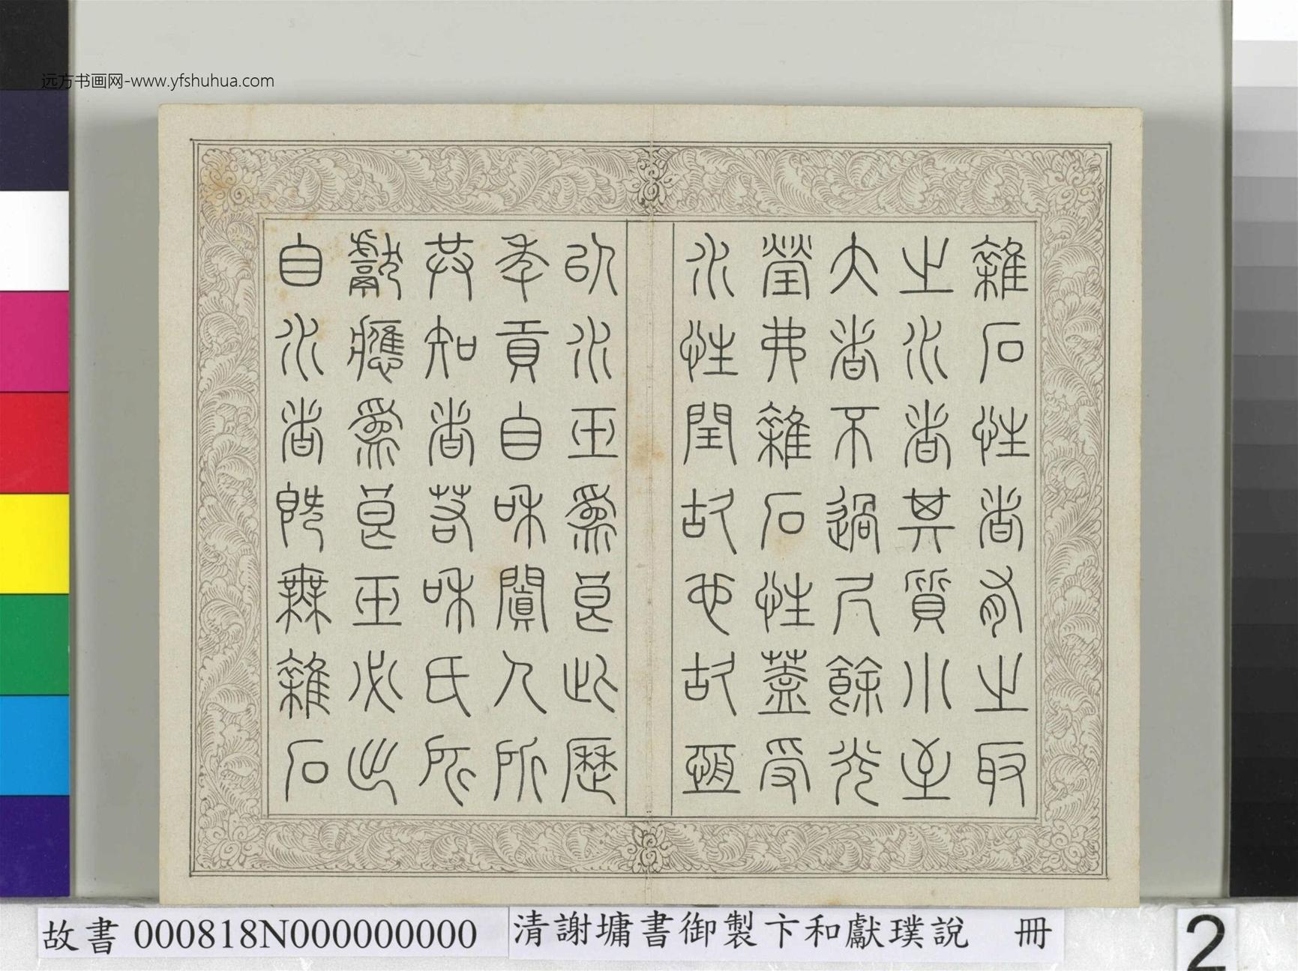 远方书画网-www.yfshuhua.com
雜石性者有之取
之水者其質小至
大者不過尺餘光
瑩弗雜石性蓋受
水性閏故也故恆
以水玉為良此歷
年貢自和闐人所
共知者若和氏所
獻應為良玉必出
自水者既無雜石
故書 000818N000000000
清謝墉書御製卞和獻璞說 冊
2